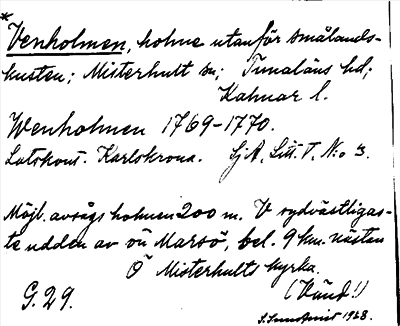 *
Venholmen, holme utanför smålands-
kusten; Misterhult sn; Tunaläns hd;
Kalmar l.
Wenholmen 1769-1770.
Lotskont. Karlskrona. SjA, Litt. T, No 3.
Möjl. avsågs holmen 200 m. V sydvästligas-
te udden av ön Marsö, bel. 9 km. nästan
Ö Misterhults kyrka.
(Vänd!)
G. 29.
1928.